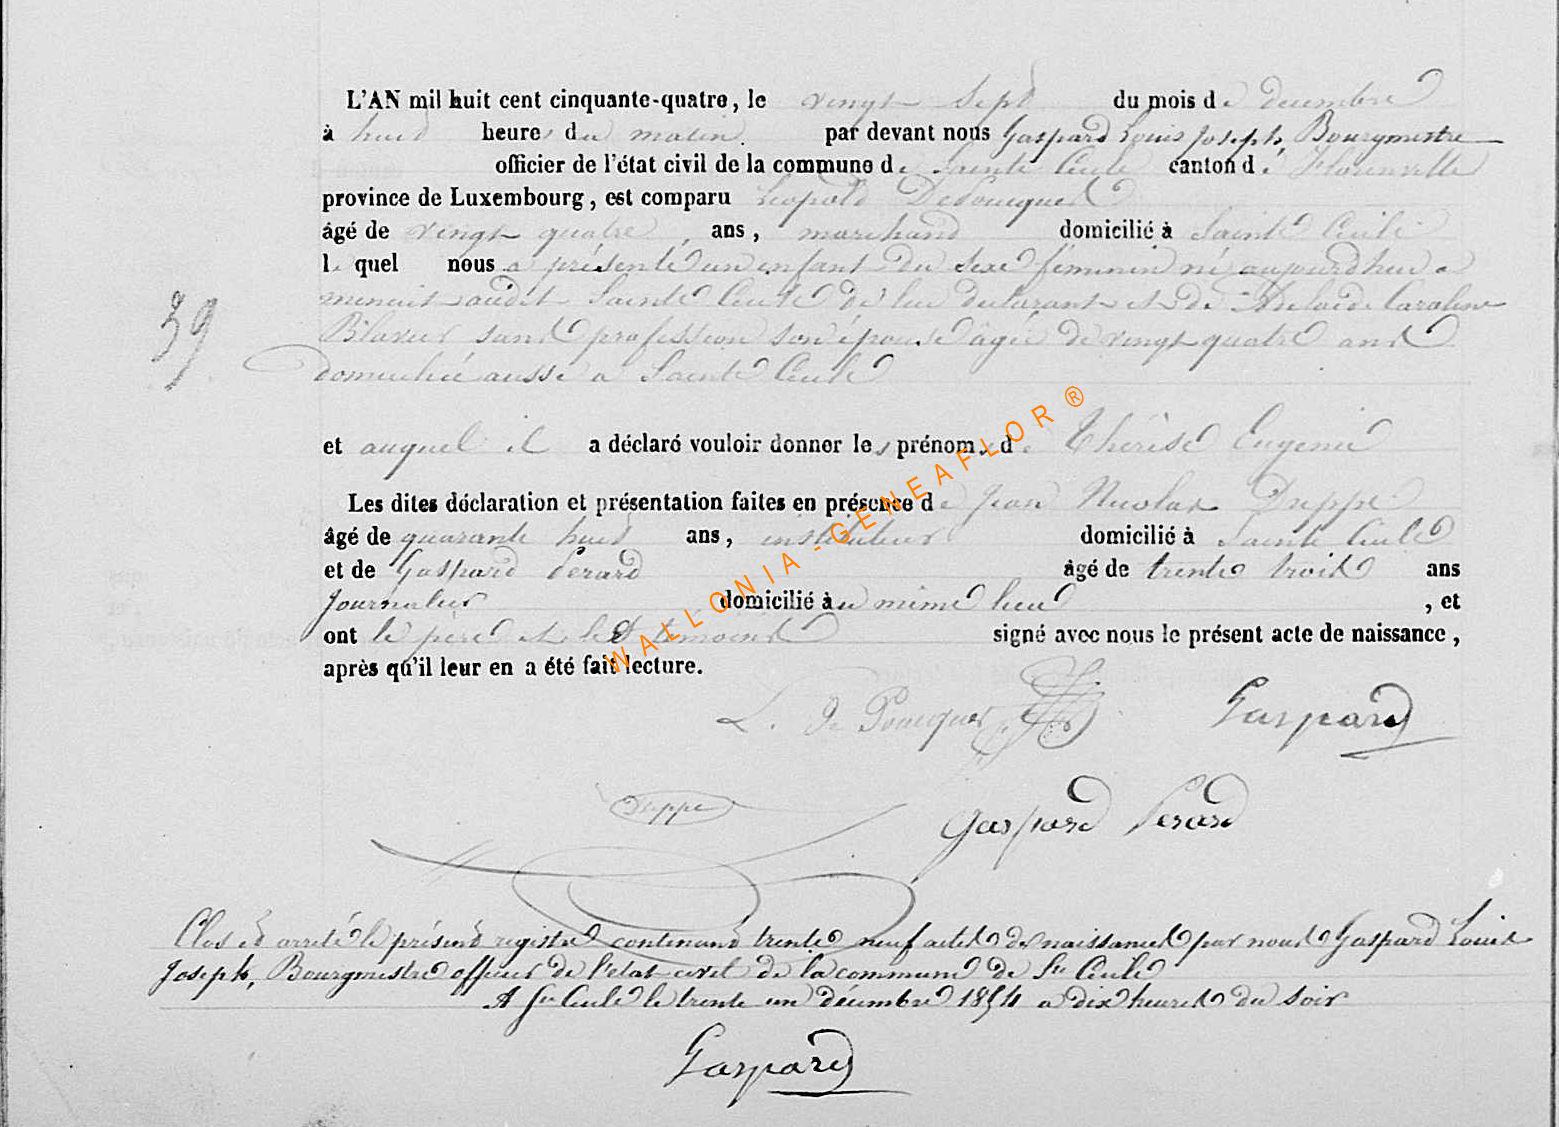 L'AN mil huit cent cinquante-quatre, le vingt sept du mois de decembre
à huit heures du matin. par devant nous Gaspard Louis Joseph, Bourgmestre
officier de l'état civil de la commune de Sainte Cécile canton de Florenville
province de Luxembourg, est comparu Léopold DePoucques
âgé de vingt quatre ans, marchand domicilié à Sainte Cécile
le quel nous a présenté un enfant du sexe féminin né aujourd'hui a
minuit audit Sainte Cécile de lui déclarant et de Adelaide Caroline
39
sans profession son épouse âgée de vingt quatre ans
domiciliée aussi a Sainte Cécile
et auquel il a déclaré vouloir donner les prénoms de Thérèse Eugenie
Les dites déclaration et présentation faites en présence de Jean Nicolas Dreppe
âgé de quarante huit ans, instituteur domicilié à Sainte Cécile
et de Gaspard Perard âgé de trente trois ans
Journalier domicilié au même lieu, et
ont le père et les témoins signé avec nous le présent acte de naissance,
après qu'il leur en a été fait lecture.
WALLONIA-GENEAFLOR®
L. De Poucques Gaspard
Dreppe
Gaspard Perard
Clos et arreté le présent registre contenant trente neuf actes de naissances par nous Gaspard Louis
Joseph, Bourgmestre officier de l'etat civil de la commune de Ste Cécile
A Ste Cécile le trente un décembre 1854 a dix heures du soir
Gaspard